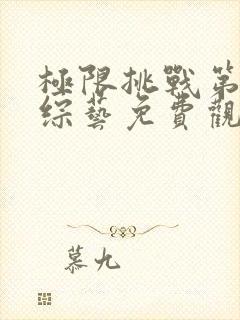 極限挑戰第
綜藝免費觀
慕九